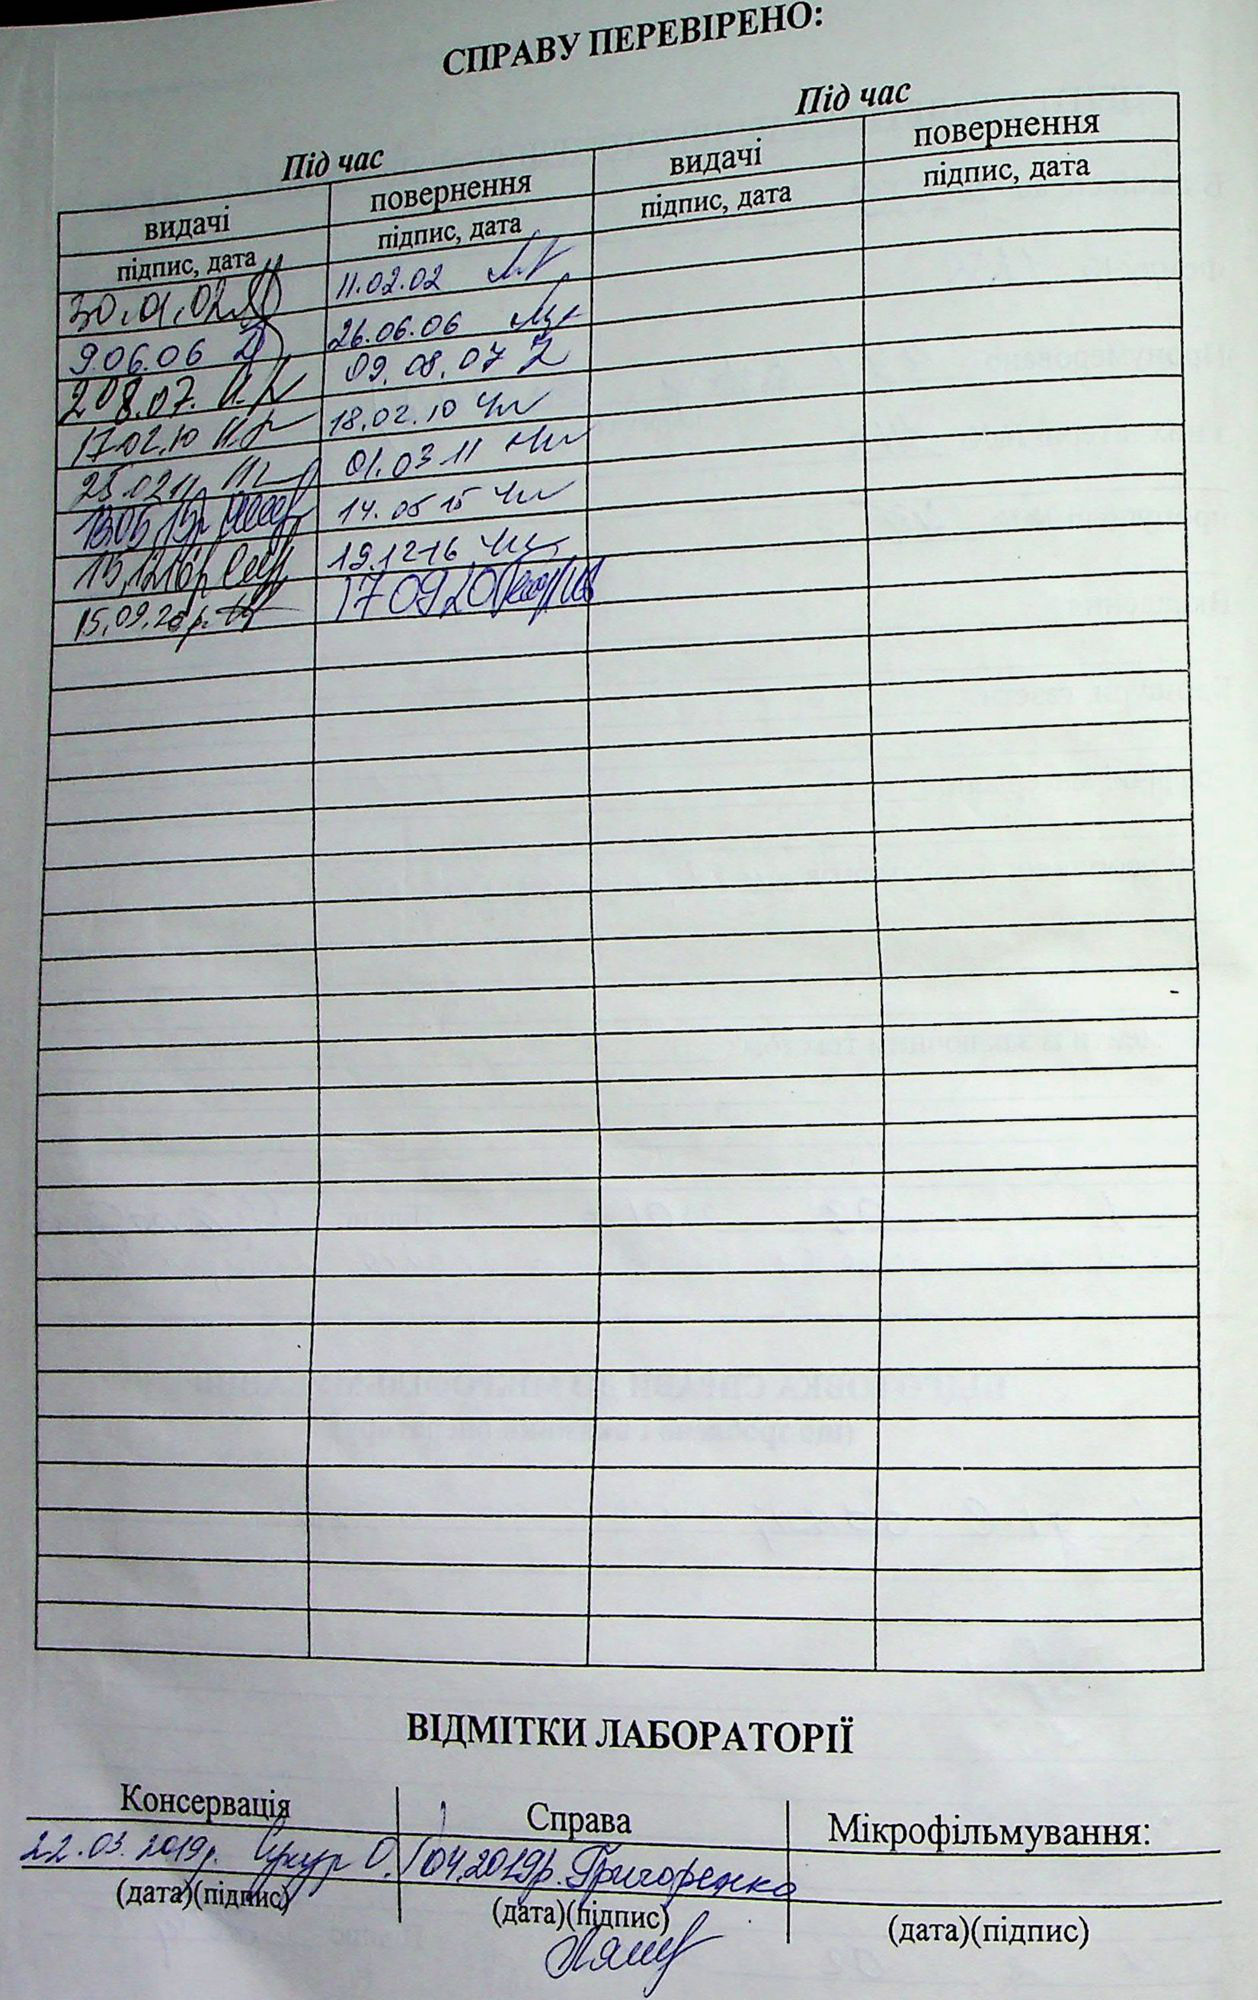 СПРАВУ ПЕРЕВІРЕНО:
Під час Під час
видачі повернення видачі повернення
підпис, дата підпис, дата підпис, дата підпис, дата
30.01.02 11.02.02
9.06.06 26.06.06
2 08.07. 09.08.07
17.02.10 18.02.10
25.02.11 01.03 11
13.05.15р 14.05 15
13.12.16р 19.12 16
15.09.20р. 17 09 20
ВІДМІТКИ ЛАБОРАТОРІЇ
Консервація Справа Мікрофільмування:
22.03.2019р. О. 04.2019р. Григоренко
(дата)(підпис) (дата)(підпис) (дата)(підпис)